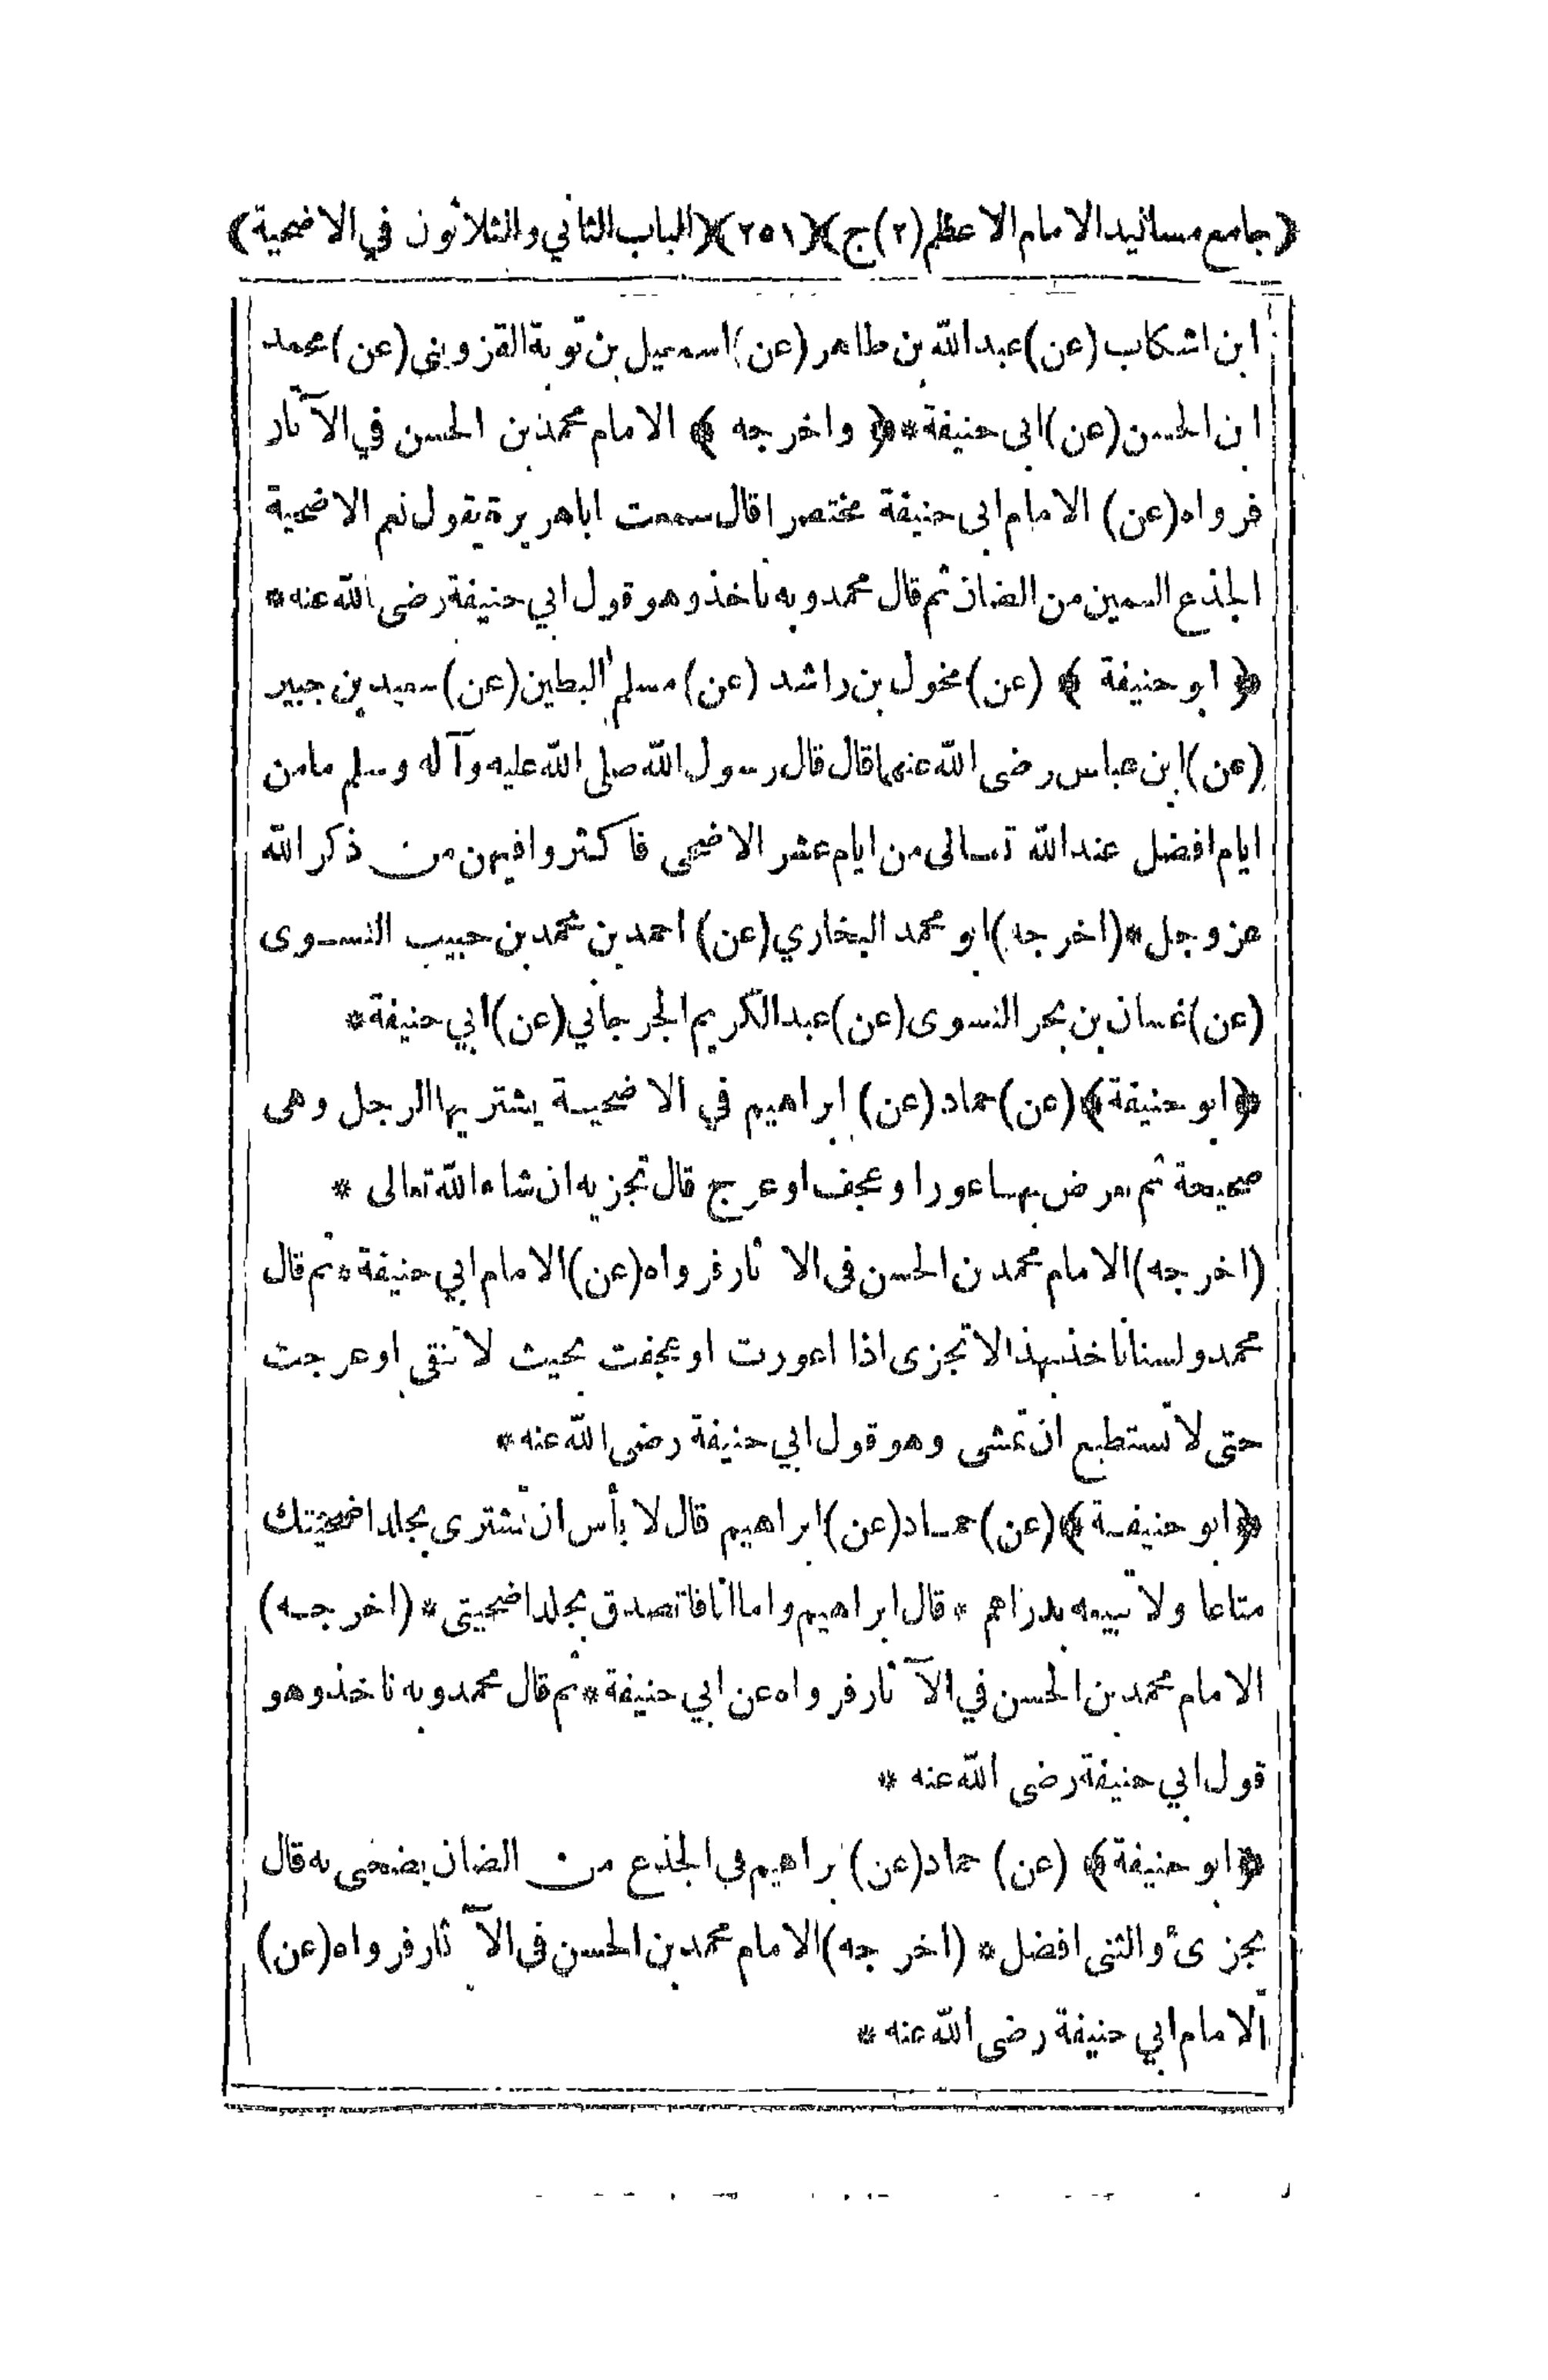 ﴿جامع مسانيد الامام الاعظم (٢) ج﴾﴿٢٥١﴾﴿الباب الثاني والثلاثون في الاضحية﴾
ابن اشكاب (عن) عبد الله بن طاهر (عن) اسمعيل بن توبة القزويني (عن) محمد
ابن الحسن (عن) ابى حنيفة * ﴿ واخرجه ﴾ الامام محمد بن الحسن في الآثار
فرواه (عن) الامام ابى حنيفة مختصرا قال سمعت اباهريرة يقول نعم الاضحية
الجذع السمين من الضان ثم قال محمد وبه ناخذ وهو قول ابي حنيفة رضى الله عنه *
﴿ ابو حنيفة ﴾ (عن) مخول بن راشد (عن) مسلم البطين (عن) سعيد بن جبير
(عن) ابن عباس رضى الله عنهما قال قال رسول الله صلى الله عليه وآله وسلم مامن
ايام افضل عند الله تعالى من ايام عشر الاضحى فاكثروا فيهن من ذكر الله
عزوجل * (اخرجه) ابو محمد البخاري (عن) احمد بن محمد بن حبيب النسوى
(عن) غسان بن بحر النسوى (عن) عبد الكريم الجرجاني (عن) ابي حنيفة *
﴿ابو حنيفة﴾ (عن) حماد (عن) ابراهيم في الاضحية يشتريها الرجل وهى
صحيحة ثم يعرض بها عور او عجف او عرج قال تجزيه ان شاء الله تعالى *
(اخرجه) الامام محمد بن الحسن فى الاثار فرواه (عن) الامام ابي حنيفة * ثم قال
محمد ولسنا ناخذ بهذا لا تجزى اذا اعورت او عجفت بحيث لا تنقى او عرجت
حتى لا تستطيع ان تمشى وهو قول ابي حنيفة رضى الله عنه *
﴿ابو حنيفة﴾ (عن) حماد (عن) ابراهيم قال لا بأس ان تشترى بجلد اضحيتك
متاعا ولا تبيعه بدراهم * قال ابراهيم واما انا فاتصدق بجلد اضحيتى * (اخرجه)
الامام محمد بن الحسن في الآثار فرواه عن ابي حنيفة * ثم قال محمد وبه ناخذ وهو
قول ابي حنيفة رضى الله عنه *
﴿ابو حنيفة﴾ (عن) حماد (عن) ابراهيم في الجذع من الضان يضحى به قال
يجزىٔ والثنى افضل * (اخرجه) الامام محمد بن الحسن فى الآثار فرواه (عن)
الامام ابي حنيفة رضى الله عنه *